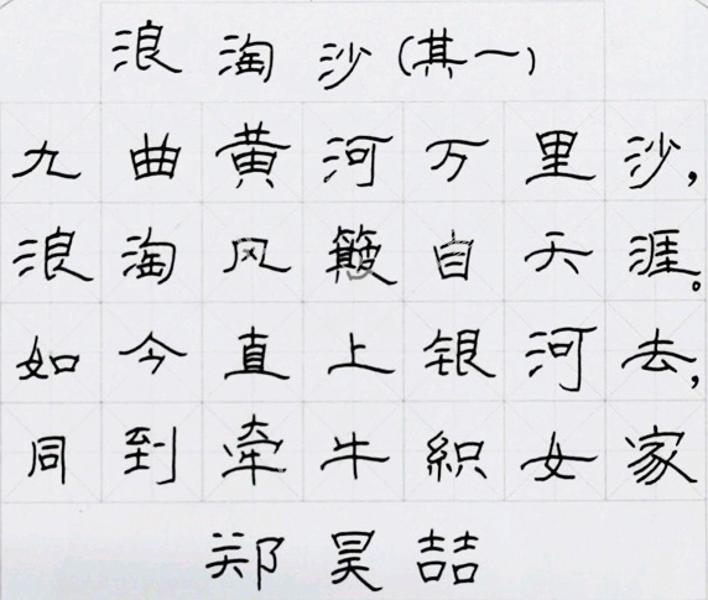 浪淘沙(其一)
九曲黄河万里沙,
浪淘风簸自天涯。
如今直上银河去,
同到牵牛織女家
郑昊喆